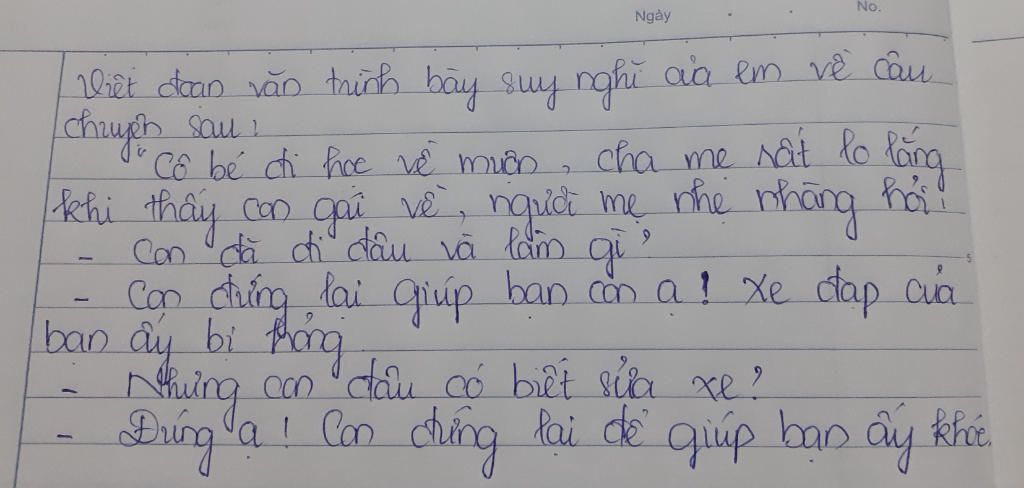 Ngày . . No.
Viết đoạn văn trình bày suy nghĩ của em về câu
chuyện sau:
"Cô bé đi học về muộn, cha mẹ rất lo lắng
khi thấy con gái về, người mẹ nhẹ nhàng hỏi:
- Con đã đi đâu và làm gì?
- Con đứng lại giúp bạn con ạ! Xe đạp của
bạn ấy bị hỏng
- Nhưng con đâu có biết sửa xe?
- Đúng ạ! Con dừng lại để giúp bạn ấy khóc.